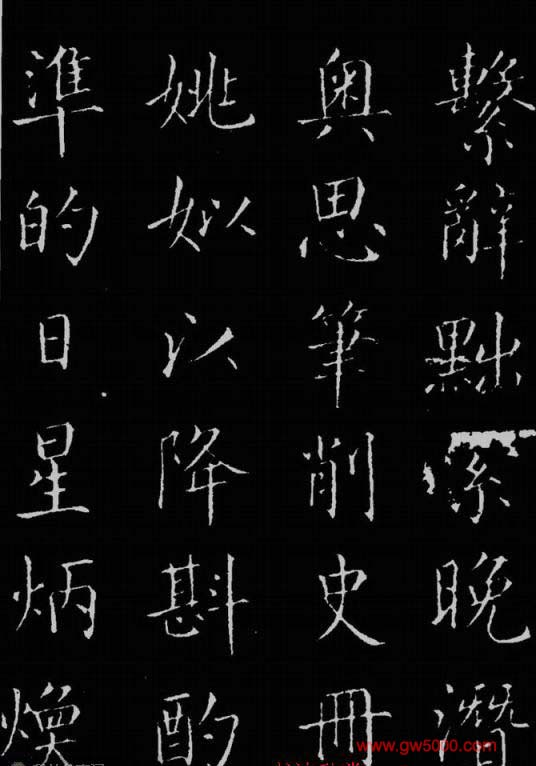 繫辭黜晚潛
奧思筆削史冊
姚姒以降斟酌
準的日星炳煥
www.gw5000.com